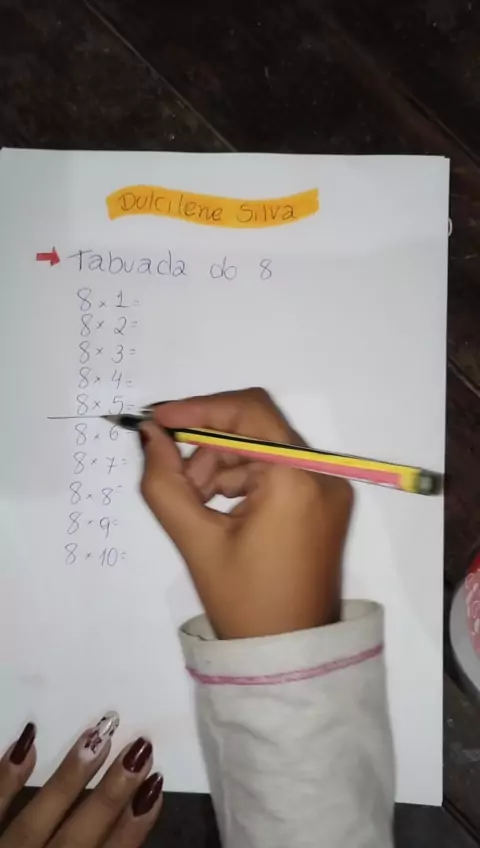 Dulcilene Silva
Tabuada do 8
8 × 1 =
8 × 2 =
8 × 3 =
8 × 4 =
8 × 5 =
8 × 6 =
8 × 7 =
8 × 8 =
8 × 9 =
8 × 10 =